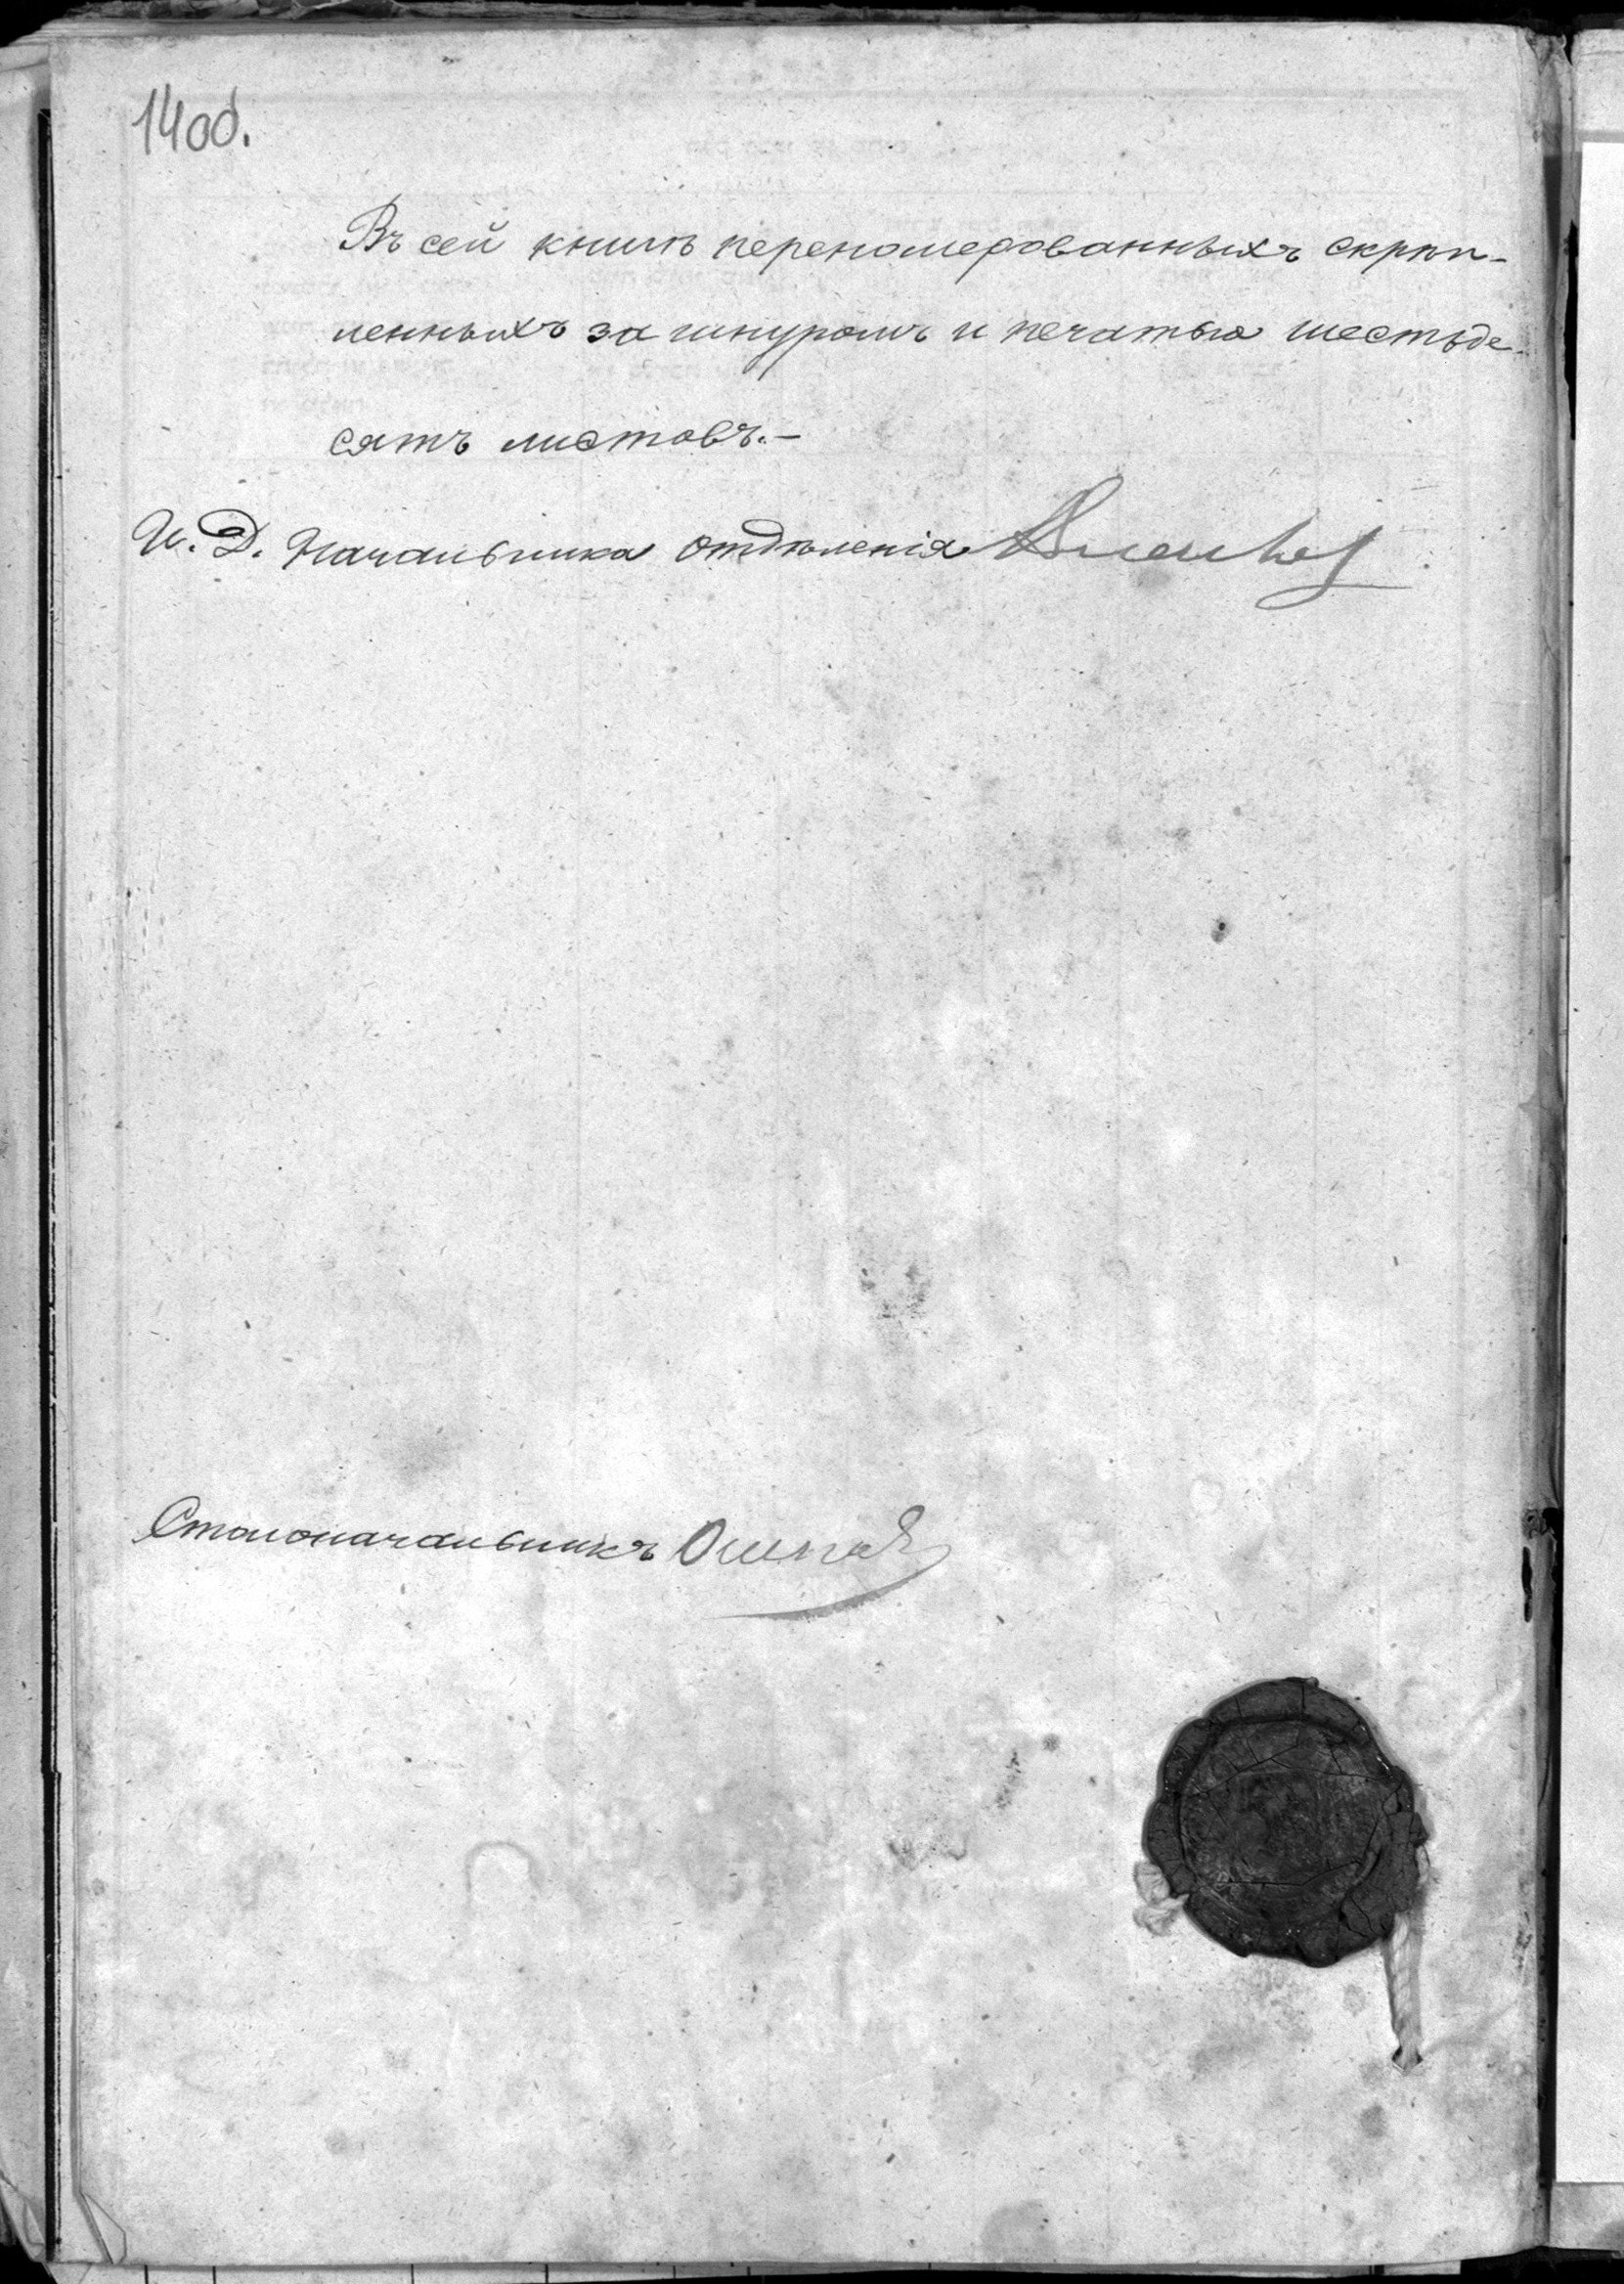 14об.
Въ сей книгѣ переномерованныхъ скрѣп-
ленныхъ за шнуромъ и печатью шестьде-
сятъ листовъ.-
И. Д. Начальника отдѣленія
Столоначальникъ